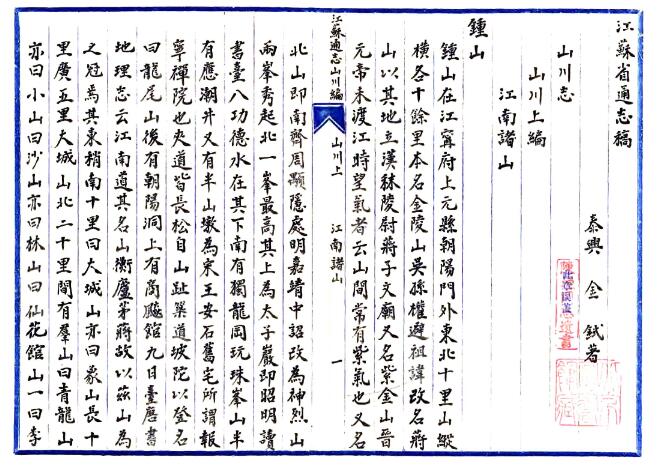 江蘇省通志稿
泰興 金鉽著
山川志
山川上編
江南諸山
鍾山
鍾山在江甯府上元縣朝陽門外東北十里山縱
橫各十餘里本名金陵山吳孫權避祖諱改名蔣
山以其地立漢秣陵尉蔣子文廟又名紫金山晉
元帝未渡江時望氣者云山間常有紫氣也又名
江蘇通志山川編
山川上
江南諸山
一
北山即南齊周顒隱處明嘉靖中詔改為神烈山
兩峯秀起北一峯最高其上為太子巖即昭明讀
書臺八功德水在其下南有獨龍岡玩珠峯山半
有應潮井又有半山墩為宋王安石舊宅所謂報
寧禪院也夾道皆長松自山趾築道坡陀以登名
曰龍尾山後有朝陽洞上有商飈館九日臺唐書
地理志云江南道其名山衡廬茅蔣故以茲山為
之冠焉其東稍南十里曰大城山亦曰象山長十
里廣五里大城山北二十里間有羣山曰青龍山
亦曰小山曰沙山亦曰林山曰仙花館山一曰李